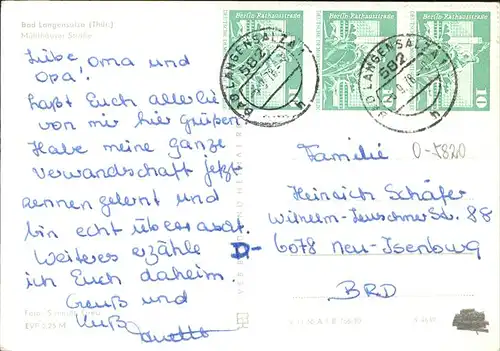 Bad Langensalza (Thür.)
Mühlhäuser Straße
Liebe Oma und
Opa!
Laßt Euch allerliebst
von mir hier grüßen
Habe meine ganze
verwandschaft jetzt
kennen gelernt und
bin echt überrascht.
Weiteres erzähle
ich Euch daheim.
Gruß und
Kuß
EVP 0,25 M
Berlin-Rathausstraße
10
Berlin-Rathausstraße
10
Berlin-Rathausstraße
10
BAD LANGENSALZA 1
582
BAD LANGENSALZA 1
582
Familie
O-5820
Heinrich Schäfer
Wilhelm-Leuschner Str. 88
D-
6078 Neu-Isenburg
BRD